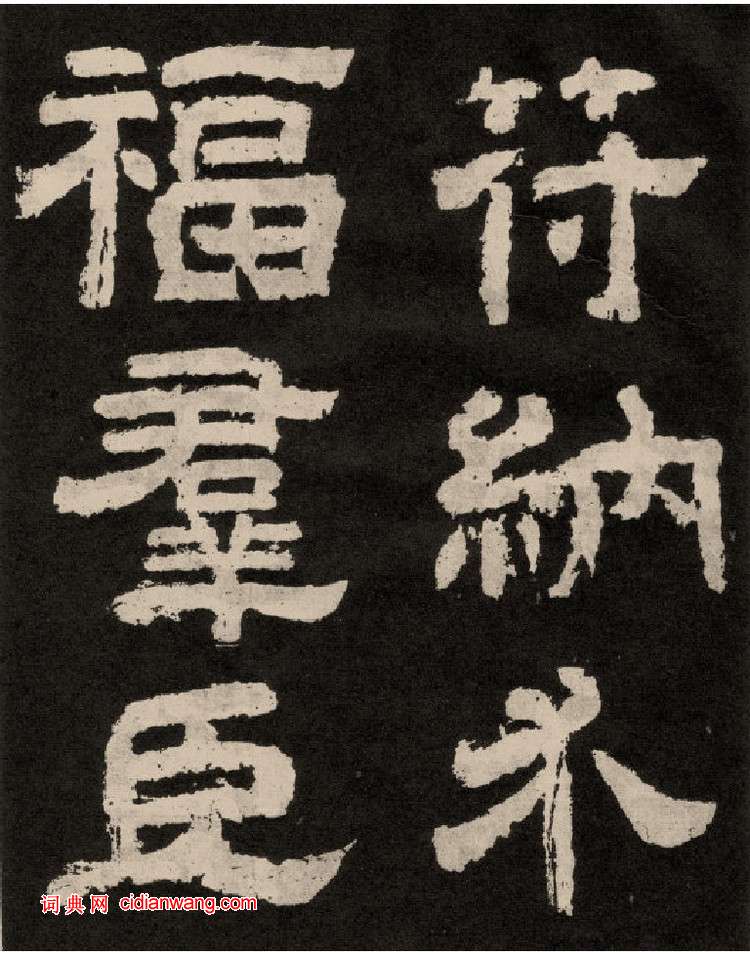 符納永
福羣臣
词典网 cidianwang.com